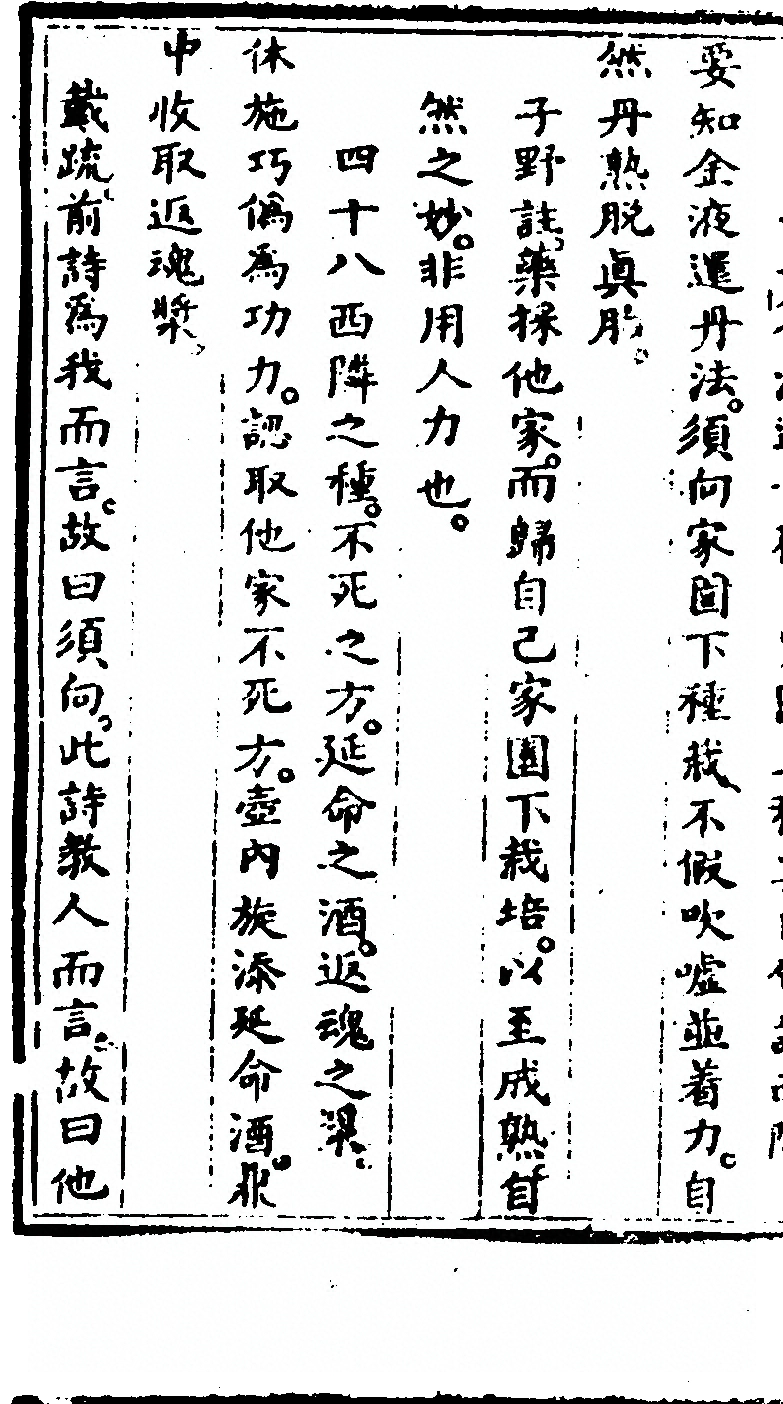 要知金液還丹法。須向家園下種栽、不假吹噓並着力。自
然丹熟脱眞胎。
子野註、藥採他家。而歸自己家園下栽培。以至成熟自
然之妙。非用人力也。
四十八西隣之種。不死之方。延命之酒。返魂之漿。
休施巧僞爲功力。認取他家不死方。壺内旋添延命酒。鼎
中收取返魂漿、
戴疏、前詩爲我而言。故曰須向、此詩教人而言。故曰他